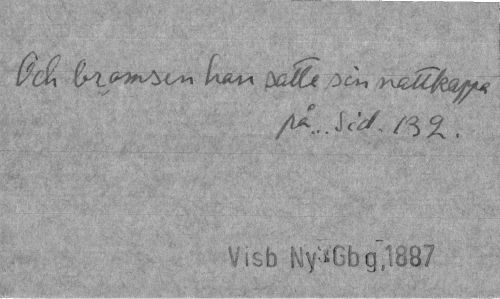 Och bromsen han satte sin nattkappa
på... Sid. 132.
Visb Ny, Gbg, 1887